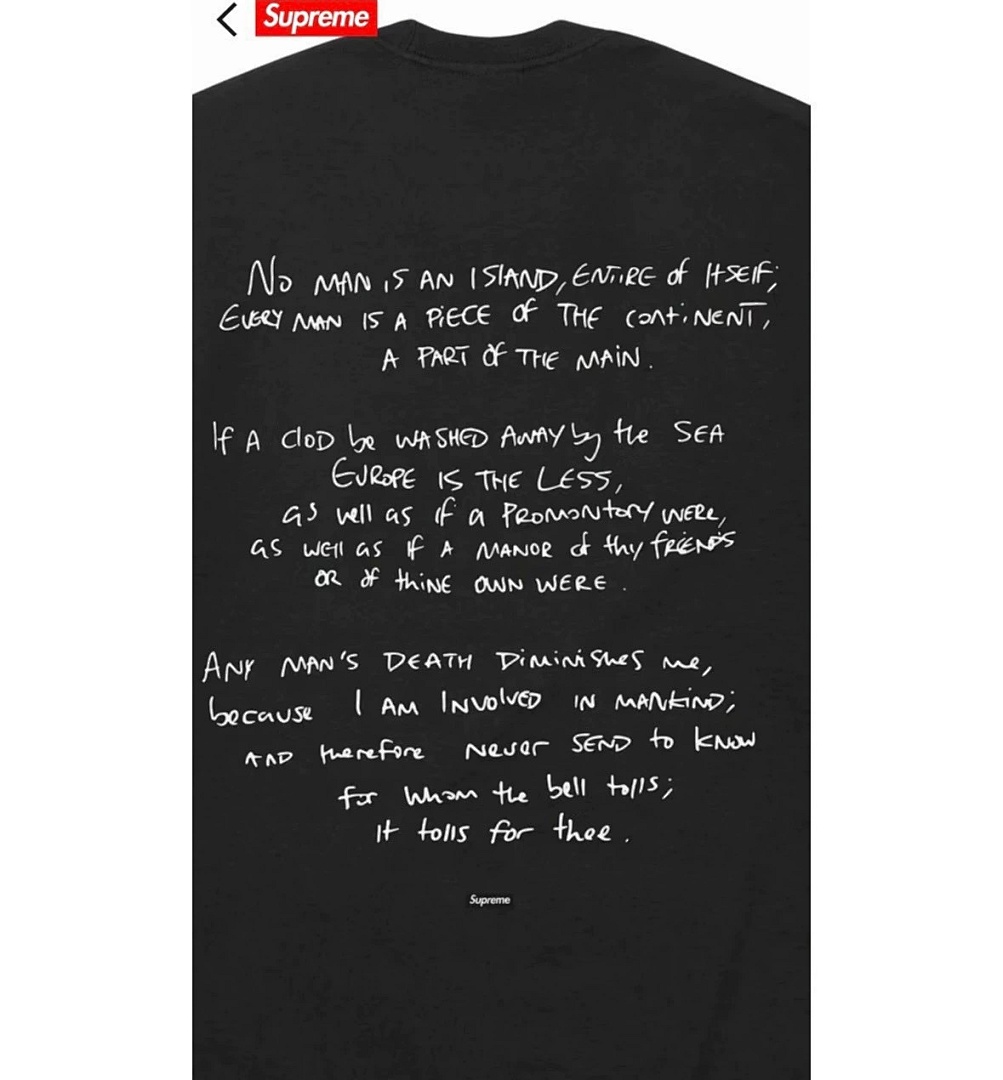 Supreme
No MAN IS AN ISLAND, ENTIRE of ITSELF;
EVERY MAN IS A PiECE of THE CONtiNENT,
A PART of THE MAiN.
If A CloD be WASHED AWAY by the SEA
EUROPE IS THE LESS,
as well as if a PROMONtory WERE,
as well as If A MANOR of thy fRiENDS
OR of thiNE OWN WERE.
ANY MAN'S DEATH DiminisHes me,
because I AM INVolvED IN MANkiND;
AND therefore Never SEND to kNow
for Whom the bell tolls;
It tolls for thee.
Supreme